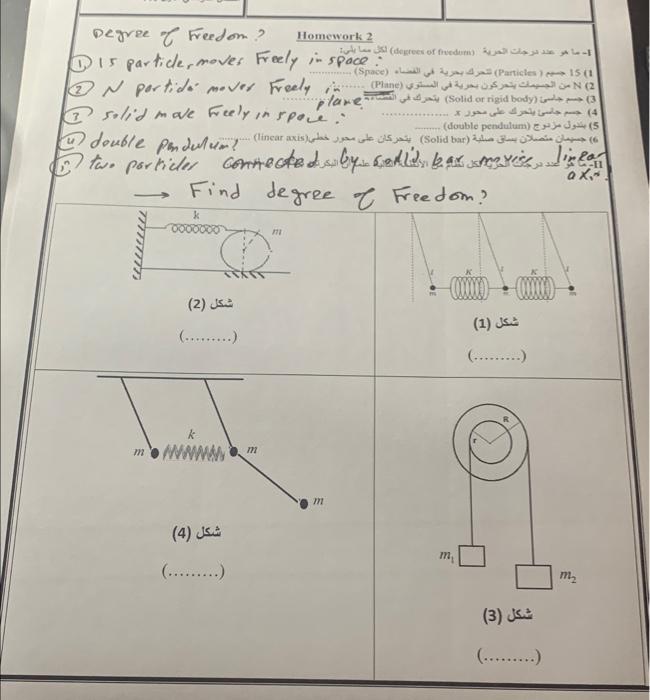 Degree of Freedom?
Homework 2
I- ما هو عدد درجات الحرية (degrees of freedom) لكل مما يلي:
① 15 particle, moves Freely in space:
1) 15 جسيم (Particles) تتحرك بحرية في الفضاء (Space) ............
② N particle moves Freely in plane
2) N من الجسيمات يتحركون بحرية في المستوي (Plane) ............
3) جسم جاسئ (Solid or rigid body) يتحرك في الفضاء
③ solid move Freely in space:
4) جسم جاسئ يتحرك على محور x ............
5) بندول مزدوج (double pendulum) ............
④ double pendulum?
6) جسيمان متصلان بساق صلبة (Solid bar) يتحركان على محور خطي (linear axis) ............
⑤ two particles connected by solid bar moving linear axis.
→ Find degree of Freedom?
k
m
شكل (2)
(.........)
l
l
l
K
K
m
m
m
شكل (1)
(.........)
k
m
m
m
شكل (4)
(.........)
R
r
m₁
m₂
شكل (3)
(.........)